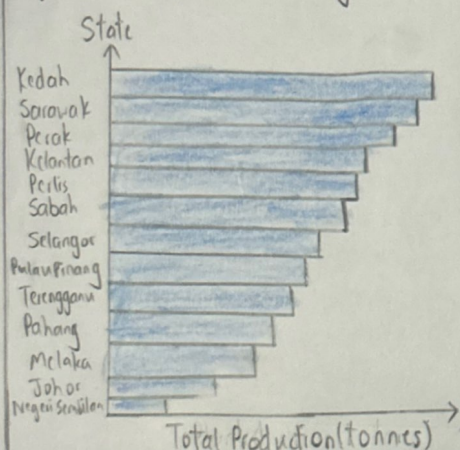 State
Kedah
Sarawak
Perak
Kelantan
Perlis
Sabah
Selangor
Pulau Pinang
Terengganu
Pahang
Melaka
Johor
Negeri Sembilan
Total Production (tonnes)